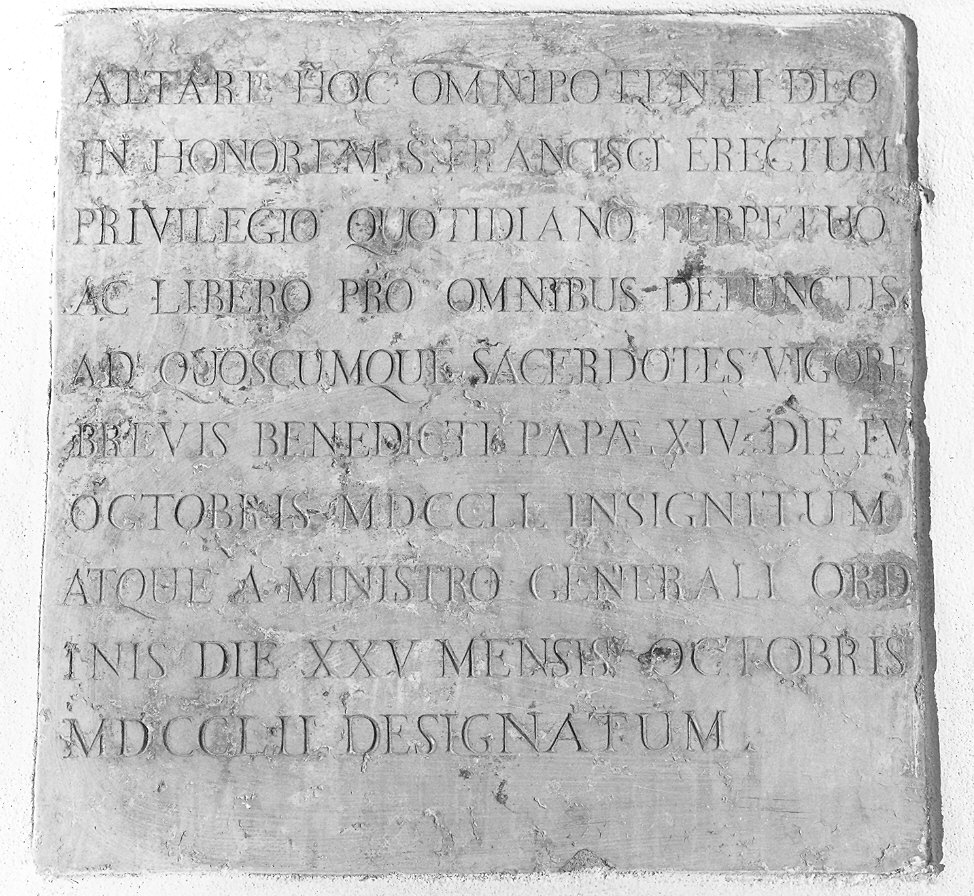 ALTARE HOC OMNIPOTENTI DEO
IN HONOREM S. FRANCISCI ERECTUM
PRIVILEGIO QUOTIDIANO PERPETUO
AC LIBERO PRO OMNIBUS DEFUNCTIS
AD QUOSCUMQUE SACERDOTES VIGORE
BREVIS BENEDICTI PAPÆ XIV. DIE IV
OCTOBRIS MDCCLI. INSIGNITUM
ATQUE A MINISTRO GENERALI ORD
INIS DIE XXV MENSIS OCTOBRIS
MDCCLII DESIGNATUM.